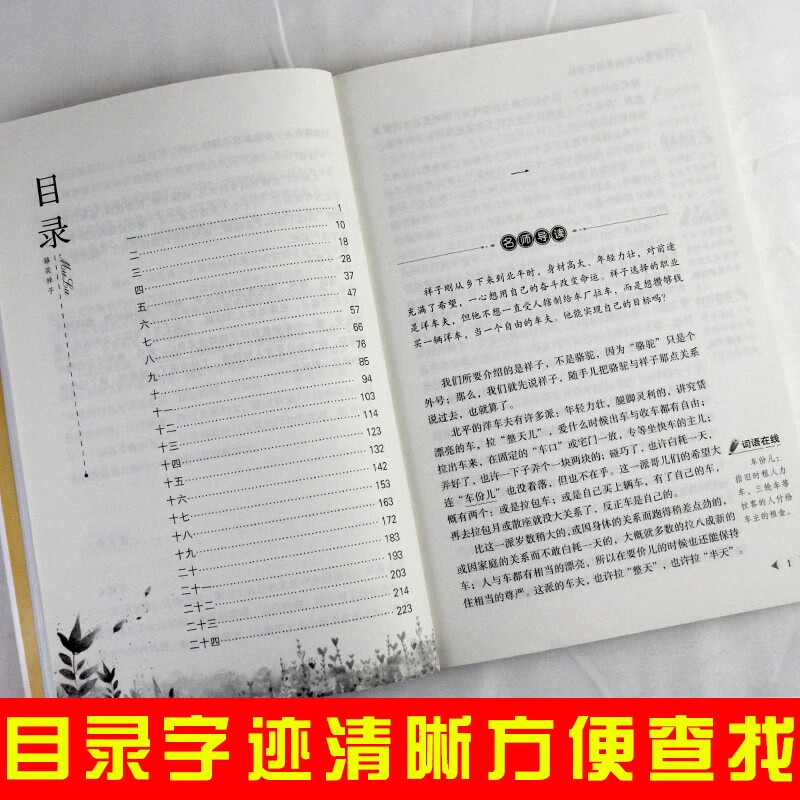 目录
MuLu
骆驼祥子
一 1
二 10
三 18
四 28
五 37
六 47
七 57
八 66
九 76
十 85
十一 94
十二 103
十三 114
十四 123
十五 132
十六 142
十七 153
十八 163
十九 172
二十 183
二十一 193
二十二 203
二十三 214
二十四 223
一
名师导读
祥子刚从乡下来到北平时，身材高大、年轻力壮，对前途
充满了希望，一心想用自己的奋斗改变命运。祥子选择的职业
是洋车夫，但他不想一直受人辖制给车厂拉车，而是想攒够钱
买一辆洋车，当一个自由的车夫。他能实现自己的目标吗？
我们所要介绍的是祥子，不是骆驼，因为“骆驼”只是个
外号；那么，我们就先说祥子，随手儿把骆驼与祥子那点关系
说过去，也就算了。
北平的洋车夫有许多派：年轻力壮，腿脚灵利的，讲究赁
漂亮的车，拉“整天儿”，爱什么时候出车与收车都有自由；
拉出车来，在固定的“车口”或宅门一放，专等坐快车的主儿；
弄好了，也许一下子弄个一块两块的；碰巧了，也许白耗一天，
连“车份儿”也没着落，但也不在乎。这一派哥儿们的希望大
概有两个：或是拉包车；或是自己买上辆车，有了自己的车，
再去拉包月或散座就没大关系了，反正车是自己的。
比这一派岁数稍大的，或因身体的关系而跑得稍差点劲的，
或因家庭的关系而不敢白耗一天的，大概就多数的拉八成新的
车；人与车都有相当的漂亮，所以在要价儿的时候也还能保持
住相当的尊严。这派的车夫，也许拉“整天”，也许拉“半天”。
词语在线
车份儿：
指旧时租人力
车、三轮车等
拉客的人付给
车主的租金。
1
目录字迹清晰方便查找